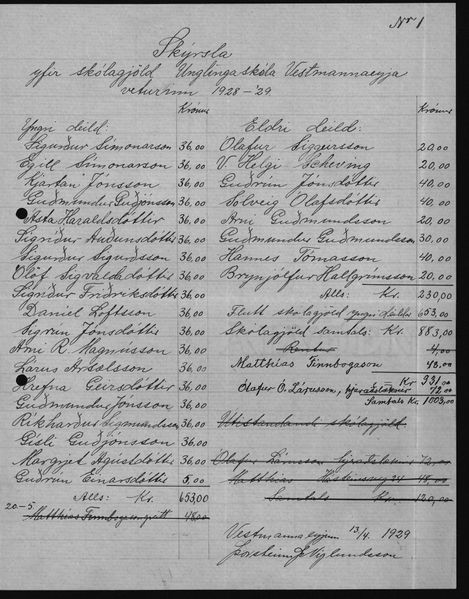 Nr 1
Skýrsla
yfir skólagjöld Unglingaskóla Vestmannaeyja
veturinn 1928-'29.
Krónur
Yngri deild:
Sigurður Símonarson 36,00
Egill Símonarson 36,00
Kjartan Jónsson 36,00
Guðmundur Guðjónsson 36,00
Ásta Haraldsdóttir 36,00
Sigríður Auðunsdóttir 36,00
Sigurður Sigurðsson 36,00
Ólöf Sigvaldadóttir 36,00
Sigríður Friðriksdóttir 36,00
Daníel Loftsson 36,00
Sigrún Jónsdóttir 36,00
Árni R. Magnússon 36,00
Lárus Ársælsson 36,00
Hrefna Geirsdóttir 36,00
Guðmundur Jónsson 36,00
Ríkharður Sigmundsson 36,00
Gísli Guðjónsson 36,00
Margrjet Ágústdóttir 36,00
Guðrún Einarsdóttir 5,00
Alls: Kr. 653,00
20.-5
Matthías Finnbogason 48,00
Krónur
Eldri deild:
Ólafur Sigurðsson 20,00
V Helgi Scheving 20,00
Guðrún Jónsdóttir 40,00
Solveig Ólafsdóttir 40,00
Árni Guðmundsson 20,00
Guðmundur Guðmundsson 30,00
Hannes Tómasson 40,00
Brynjólfur Hallgrímsson 20,00
Alls: Kr. 230,00
Flutt skólagjöld yngri deildar 653,00
Skólagjöld samtals: Kr. 883,00
Rentur 4,00
Matthías Finnbogason 48,00
Kr 931,00
Ólafur Ó. Lárusson, 72,00
Samtals Kr. 1003,00
Útistandandi skólagjöld
Ólafur Lárusson 72,00
Matthías 48,00
Samtals Kr 120,00
Vestmannaeyjum 13/4. 1929
Þorsteinn Þ Víglundsson